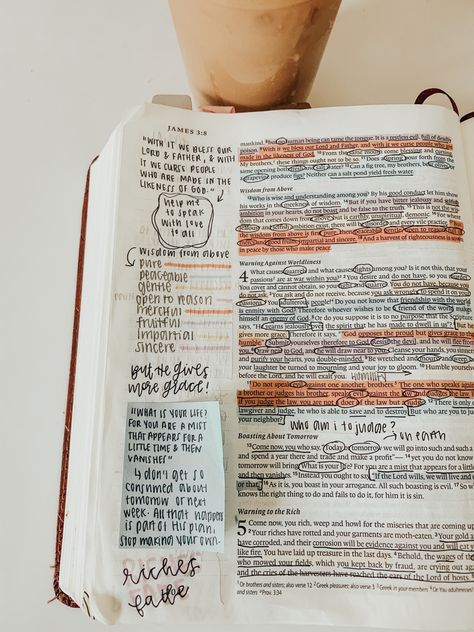 JAMES 3:8
"WITH IT WE BLESS OUR
LORD & FATHER, & WITH
IT WE CURSE PEOPLE
WHO ARE MADE IN THE
LIKENESS OF GOD."
help me
to speak
with love
to all
wisdom from above
pure
peaceable
gentle
open to reason
merciful
fruitful
impartial
sincere
but He gives
more grace!
"WHAT IS YOUR LIFE?
FOR YOU ARE A MIST
THAT APPEARS FOR A
LITTLE TIME & THEN
VANISHES"
don't get so
consumed about
tomorrow or next
week. All that happens
is part of His plan,
stop making your own
riches
fade
mankind, 8 but no human being can tame the tongue. It is a restless evil, full of deadly
poison. 9 With it we bless our Lord and Father, and with it we curse people who are
made in the likeness of God. 10 From the same mouth come blessing and cursing.
My brothers, these things ought not to be so. 11 Does a spring pour forth from the
same opening both fresh and salt water? 12 Can a fig tree, my brothers, bear olives, or
a grapevine produce figs? Neither can a salt pond yield fresh water.
Wisdom from Above
13 Who is wise and understanding among you? By his good conduct let him show
his works in the meekness of wisdom. 14 But if you have bitter jealousy and selfish
ambition in your hearts, do not boast and be false to the truth. 15 This is not the wisdom
that comes down from above, but is earthly, unspiritual, demonic. 16 For where
jealousy and selfish ambition exist, there will be disorder and every vile practice. 17 But
the wisdom from above is first pure, then peaceable, gentle, open to reason, full of
mercy and good fruits, impartial and sincere. 18 And a harvest of righteousness is sown in
peace by those who make peace.
Warning Against Worldliness
4 What causes quarrels and what causes fights among you? Is it not this, that your
passions are at war within you? 2 You desire and do not have, so you murder.
You covet and cannot obtain, so you fight and quarrel. You do not have, because you
do not ask. 3 You ask and do not receive, because you ask wrongly, to spend it on your
passions. 4 You adulterous people! Do you not know that friendship with the world
is enmity with God? Therefore whoever wishes to be a friend of the world makes
himself an enemy of God. 5 Or do you suppose it is to no purpose that the Scripture
says, "He yearns jealously over the spirit that he has made to dwell in us"? 6 But he
gives more grace. Therefore it says, "God opposes the proud but gives grace to the
humble." 7 Submit yourselves therefore to God. Resist the devil, and he will flee from
you. 8 Draw near to God, and he will draw near to you. Cleanse your hands, you sinners,
and purify your hearts, you double-minded. 9 Be wretched and mourn and weep. Let
your laughter be turned to mourning and your joy to gloom. 10 Humble yourselves
before the Lord, and he will exalt you.
humility
11 Do not speak evil against one another, brothers. The one who speaks against
a brother or judges his brother, speaks evil against the law and judges the law. But
if you judge the law, you are not a doer of the law but a judge. 12 There is only one
lawgiver and judge, he who is able to save and to destroy. But who are you to judge
your neighbor?
who am i to judge?
on earth
Boasting About Tomorrow
13 Come now, you who say, "Today or tomorrow we will go into such and such a town
and spend a year there and trade and make a profit"— 14 yet you do not know what
tomorrow will bring. What is your life? For you are a mist that appears for a little time
and then vanishes. 15 Instead you ought to say, "If the Lord wills, we will live and do this
or that." 16 As it is, you boast in your arrogance. All such boasting is evil. 17 So whoever
knows the right thing to do and fails to do it, for him it is sin.
Warning to the Rich
5 Come now, you rich, weep and howl for the miseries that are coming upon
you. 2 Your riches have rotted and your garments are moth-eaten. 3 Your gold and silver
have corroded, and their corrosion will be evidence against you and will eat your flesh
like fire. You have laid up treasure in the last days. 4 Behold, the wages of the laborers
who mowed your fields, which you kept back by fraud, are crying out against you,
and the cries of the harvesters have reached the ears of the Lord of hosts.